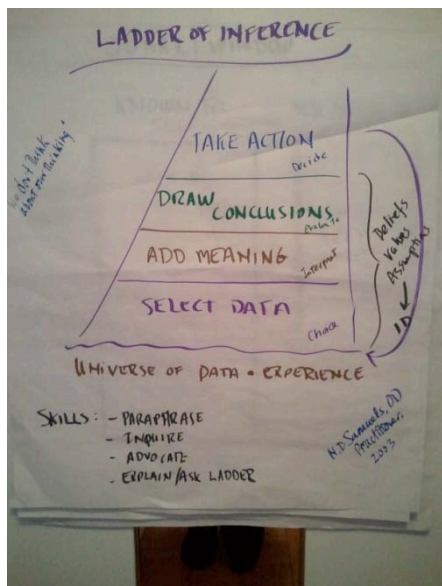 LADDER OF INFERENCE
"we don't think
about our thinking"
TAKE ACTION
Decide
DRAW
CONCLUSIONS
Evaluate
ADD MEANING
Interpret
SELECT DATA
Choice
Beliefs
Values
Assumptions
ID
UNIVERSE OF DATA • EXPERIENCE
SKILLS: - PARAPHRASE
- INQUIRE
- ADVOCATE
- EXPLAIN/ASK LADDER
N.D. OD
Practitioner.
2003